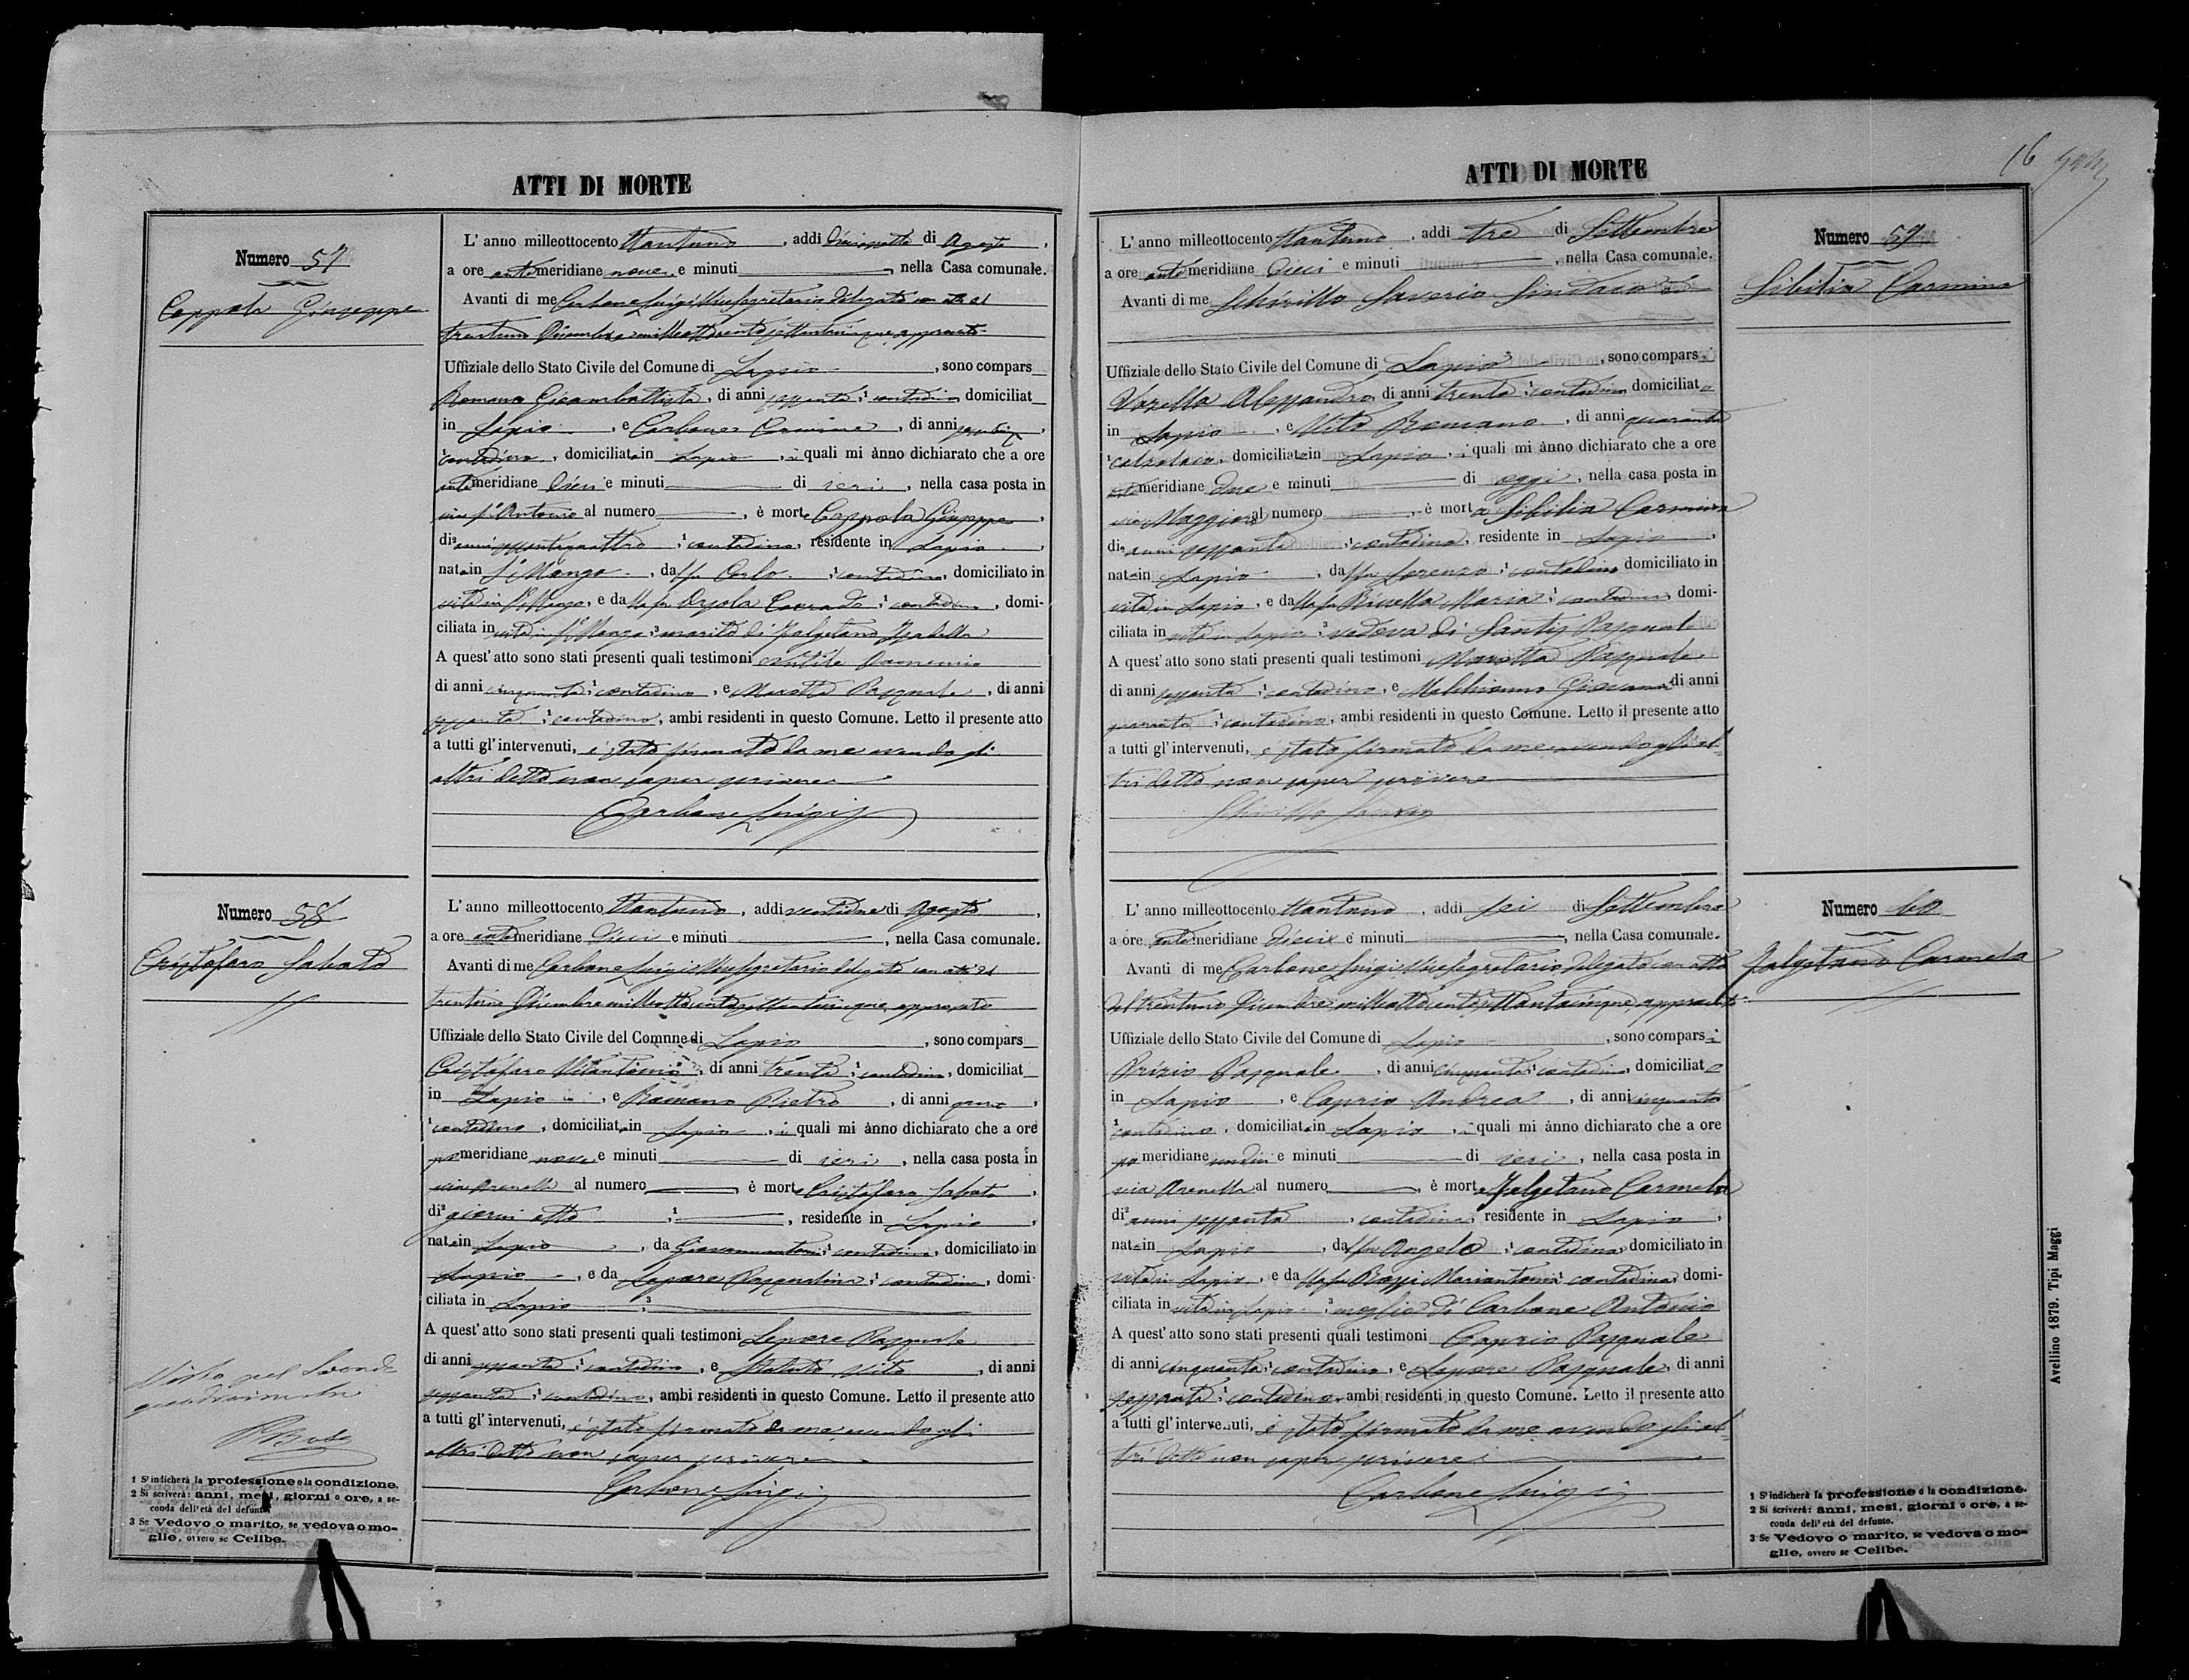 ATTI DI MORTE
Numero 57
Coppola Giuseppe
L' anno milleottocento ottantuno, addi diciassette di Agosto,
a ore antemeridiane nove e minuti, nella Casa comunale.
Avanti di me Carbone Luigi Vicesegretario delegato con atto del
trentuno Dicembre milleottocentosettantacinque approvato
Uffiziale dello Stato Civile del Comune di Lapio, sono compars
Romano Giambattista, di anni sessanta, contadino domiciliat
in Lapio, e Carbone Carmine, di anni
contadino, domiciliato in Lapio, i quali mi ànno dichiarato che a ore
antemeridiane dieci e minuti di ieri, nella casa posta in
via S. Antonio al numero, è morto Coppola Giuseppe,
di anni sessantaquattro, contadino, residente in Lapio,
nato in S. Mango, dal fu Carlo, contadino, domiciliato in
vita in S. Mango, e dalla fu Corrado, contadina, domi-
ciliata in vita in S. Mango, marito di Falzetano Isabella
A quest' atto sono stati presenti quali testimoni
di anni cinquanta, contadino, e Marotta Pasquale, di anni
sessanta, contadino, ambi residenti in questo Comune. Letto il presente atto
a tutti gl' intervenuti, è stato firmato da me avendo gli
altri detto non saper scrivere
Carbone Luigi
Numero 58
Cristofaro Sabato
L' anno milleottocento ottantuno, addi ventidue di Agosto,
a ore antemeridiane dieci e minuti, nella Casa comunale.
Avanti di me Carbone Luigi Vicesegretario delegato con atto del
trentuno Dicembre milleottocentosettantacinque, approvato
Uffiziale dello Stato Civile del Comune di Lapio, sono compars
Cristofaro Vitantonio, di anni trenta, contadino, domiciliat
in Lapio, e Romano Pietro, di anni
contadino, domiciliato in Lapio, i quali mi ànno dichiarato che a ore
pomeridiane nove e minuti di ieri, nella casa posta in
via Arenella al numero, è morto Cristofaro Sabato,
di giorni otto, residente in Lapio,
nato in Lapio, da Giovannantonio, contadino, domiciliato in
Lapio, e da Lepore Pasqualina, contadina, domi-
ciliata in Lapio
A quest' atto sono stati presenti quali testimoni Lepore Pasquale
di anni sessanta, contadino, e Vito, di anni
sessanta, contadino, ambi residenti in questo Comune. Letto il presente atto
a tutti gl' intervenuti, è stato firmato da me avendo gli
altri detto non saper scrivere
Carbone Luigi
Visto pel secondo
quadrimestre
1 S' indicherà la professione o la condizione.
2 Si scriverà: anni, mesi, giorni o ore, a se-
conda dell' età del defunto.
3 Se Vedovo o marito, se vedova o mo-
glie, ovvero se Celibe.
16
ATTI DI MORTE
Numero 59
Sibilia Carmina
L' anno milleottocento ottantuno, addi tre di Settembre
a ore antemeridiane dieci e minuti, nella Casa comunale.
Avanti di me Schirillo Saverio Sindaco ed
Uffiziale dello Stato Civile del Comune di Lapio, sono comparsi
Vozella Alessandro, di anni trenta, contadino domiciliato
in Lapio, e Vito Romano, di anni quaranta
calzolaio, domiciliato in Lapio, i quali mi ànno dichiarato che a ore
antemeridiane due e minuti di oggi, nella casa posta in
via Maggiore al numero, è morta Sibilia Carmina
di anni sessanta, contadina, residente in Lapio,
nata in Lapio, dal fu Lorenzo, contadino domiciliato in
vita in Lapio, e dalla fu Maria, contadina, domi-
ciliata in vita in Lapio, vedova di Santis Pasquale
A quest' atto sono stati presenti quali testimoni Marotta Pasquale
di anni sessanta, contadino, e Melchionna Giovanni di anni
quaranta, contadino, ambi residenti in questo Comune. Letto il presente atto
a tutti gl' intervenuti, è stato firmato da me avendo gli al-
tri detto non saper scrivere
Schirillo Saverio
Numero 60
Falzetano Carmela
L' anno milleottocento ottantuno, addi sei di Settembre
a ore antemeridiane dieci e minuti, nella Casa comunale.
Avanti di me Carbone Luigi Vicesegretario delegato con atto
del trentuno Dicembre milleottocentosettantacinque, approvato
Uffiziale dello Stato Civile del Comune di Lapio, sono comparsi
Prizio Pasquale, di anni cinquanta, contadino, domiciliato
in Lapio, e Caprio Andrea, di anni cinquanta
contadino, domiciliato in Lapio, i quali mi ànno dichiarato che a ore
pomeridiane undici e minuti di ieri, nella casa posta in
via Arenella al numero, è morta Falzetano Carmela
di anni sessanta, contadina, residente in Lapio,
nata in Lapio, dal fu Angelo, contadino, domiciliato in
vita in Lapio, e dalla fu Mariantonia, contadina, domi-
ciliata in vita in Lapio, moglie di Carbone Antonio
A quest' atto sono stati presenti quali testimoni Caprio Pasquale
di anni cinquanta, contadino, e Lepore Pasquale, di anni
sessanta, contadino, ambi residenti in questo Comune. Letto il presente atto
a tutti gl' intervenuti, è stato firmato da me avendo gli al-
tri detto non saper scrivere
Carbone Luigi
1 S' indicherà la professione o la condizione.
2 Si scriverà: anni, mesi, giorni o ore, a se-
conda dell' età del defunto.
3 Se Vedovo o marito, se vedova o mo-
glie, ovvero se Celibe.
Avellino 1879. Tipi Maggi